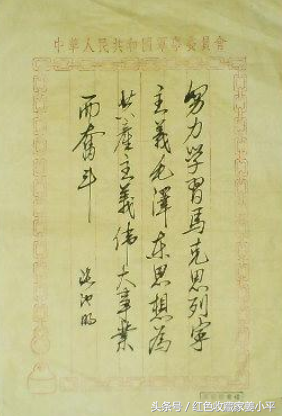 中華人民共和國軍事委員會
努力学習馬克思列寧
主義毛澤东思想為
共產主義伟大事業
而奮斗
张池明
头条号/红色收藏家姜小平